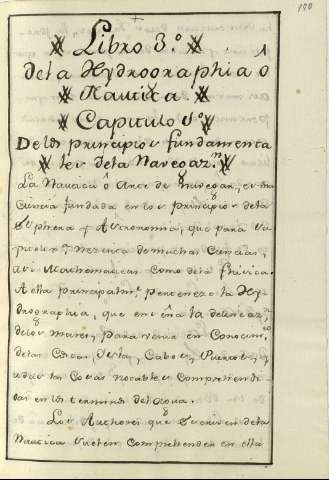 180
Libro 3.º
de la Hydrographia o
Nautica.
Capitulo 1º
De los principios fundamenta
les de la Navegaz.n
La Nautica ô Arte de Navegar, es una
ciencia fundada en los principios de la
Sphera y Astronomia, que para su
necesita de muchas Ciencias,
asi Mathematicas como de la Phisica.
A esta principalm.te pertenece la Hy-
drographia, que enseña la delineaz.on
de los mares, para venir en Conocim.to
de las Costas, Yslas, Cabos, Puertos, y
todas las Cosas notables Comprehendi-
das en los terminos del agua.
Los Authores que escriven de la
Nautica suelen Comprehender en ella